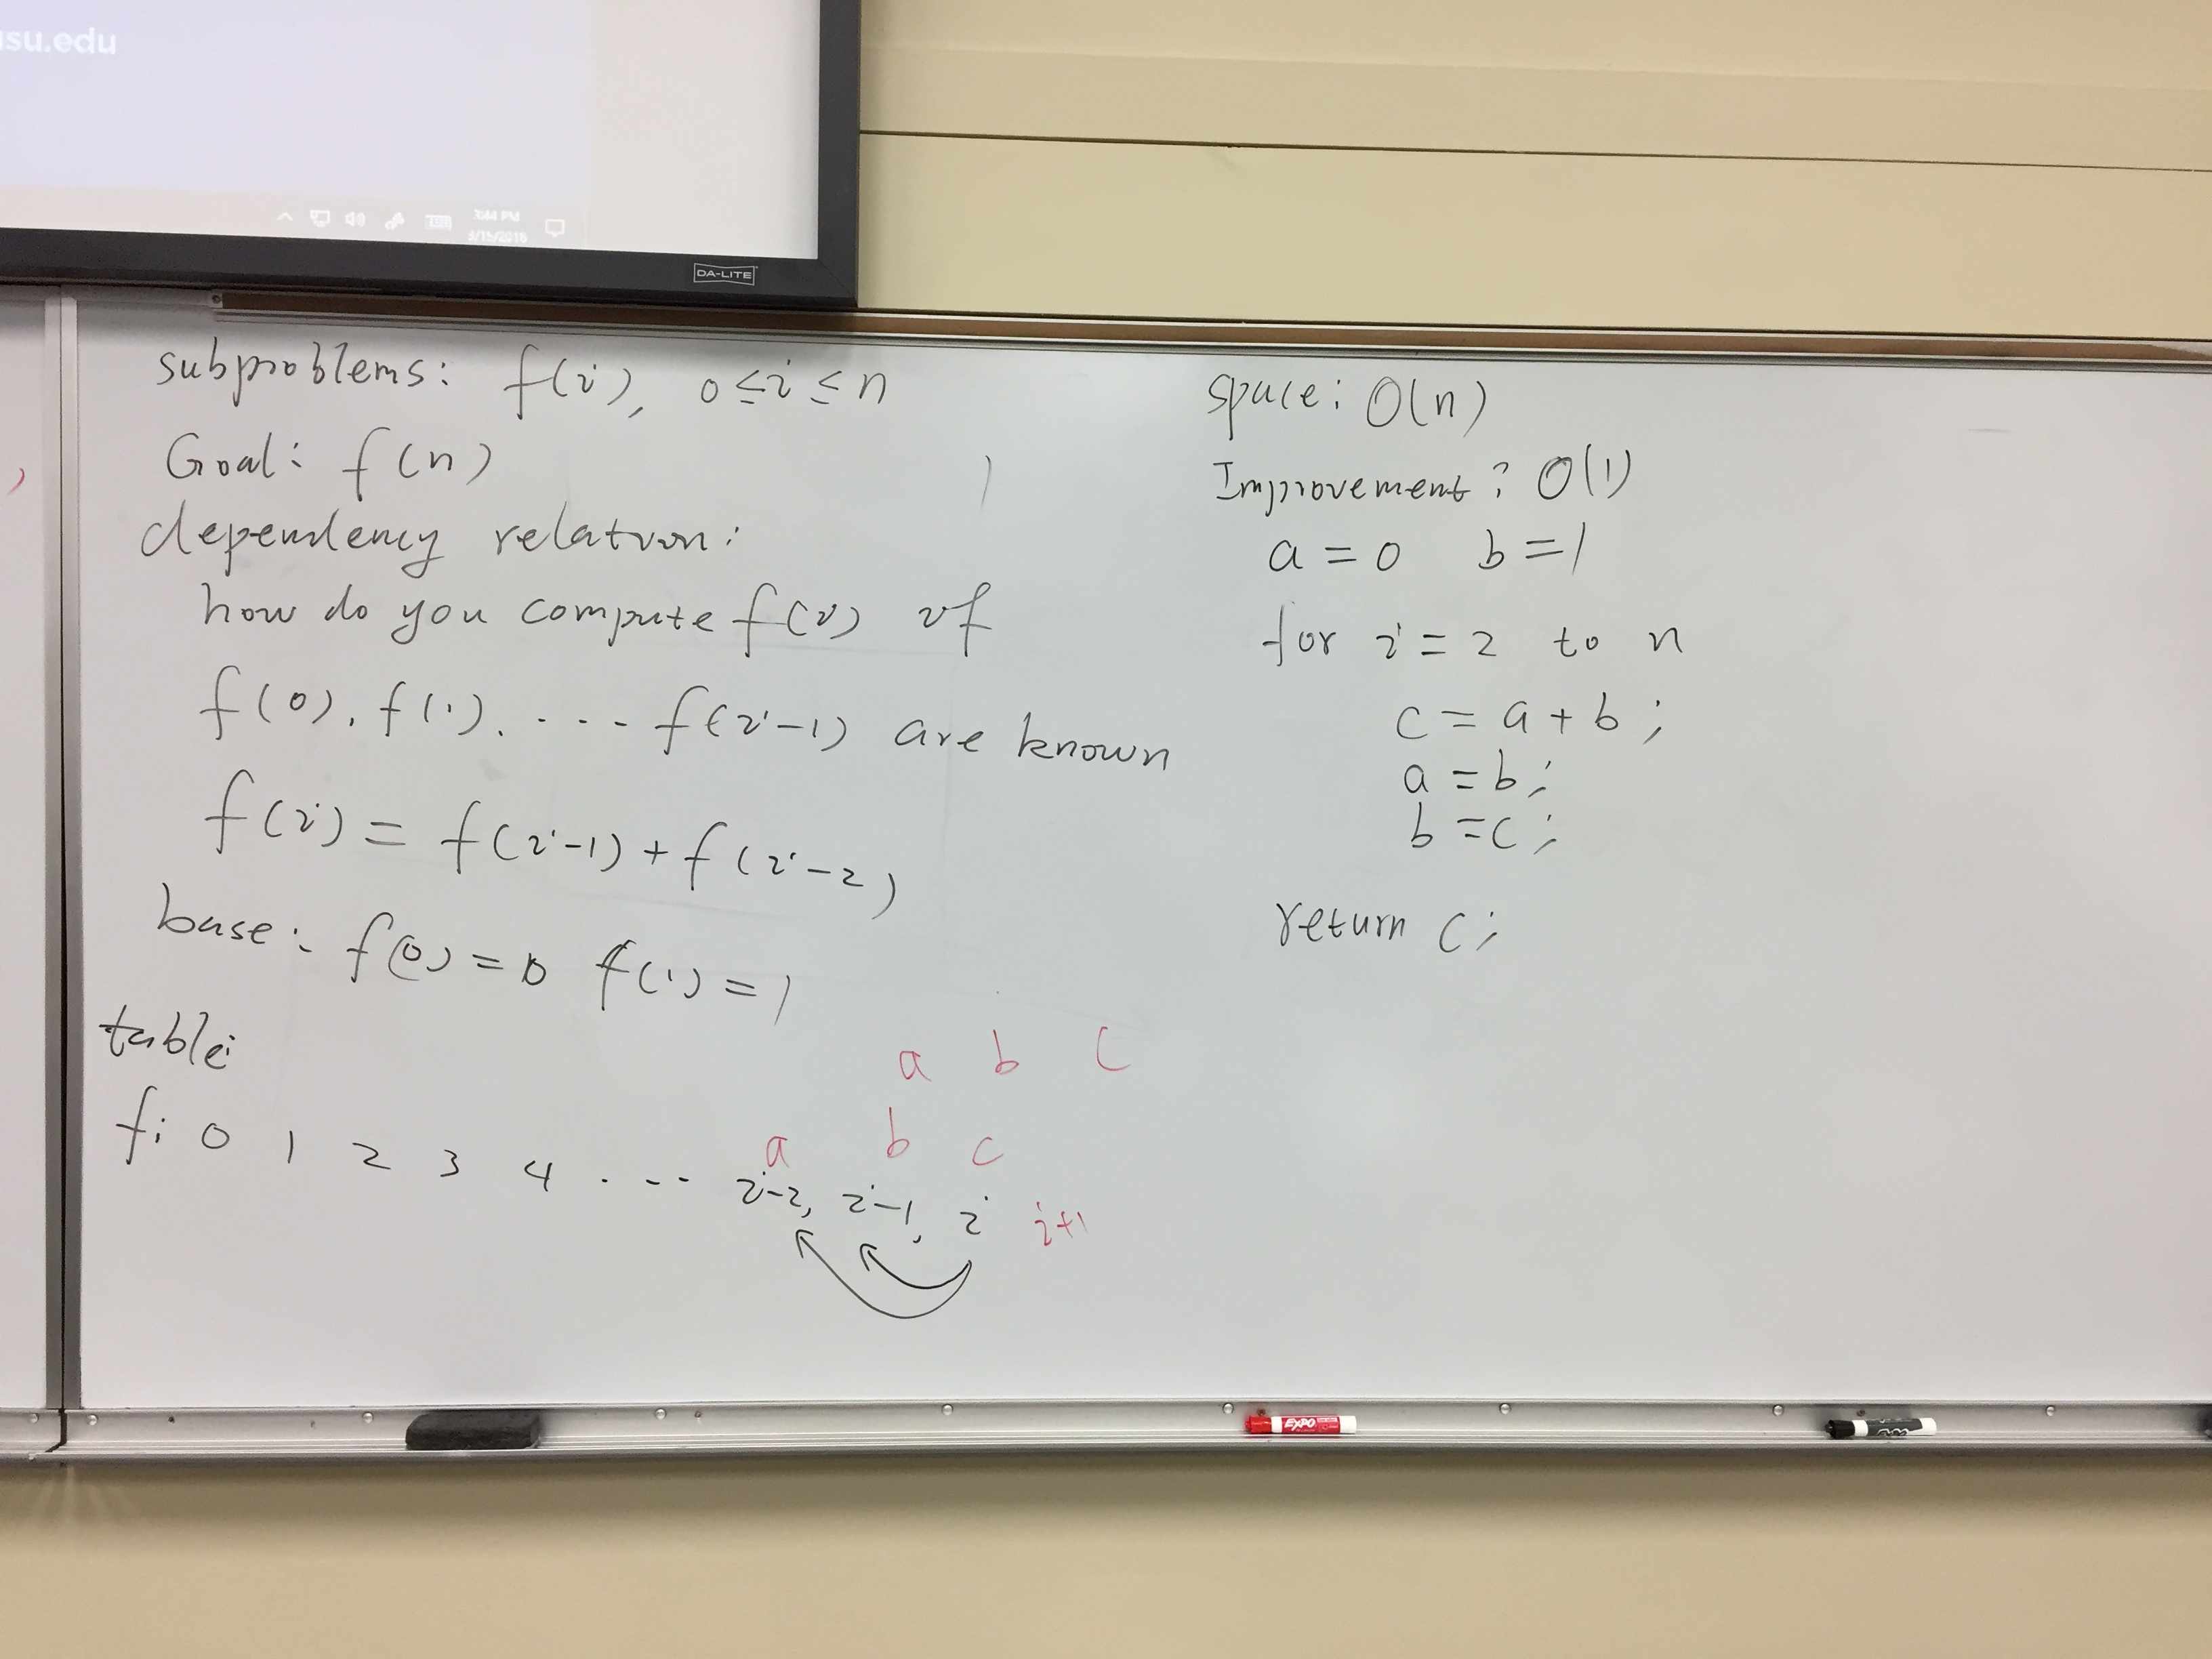 usu.edu
3:44 PM
3/15/2018
DA-LITE
subproblems: f(i), 0≤i≤n
Goal: f(n)
dependency relation:
how do you compute f(i) if
f(0), f(1), ... f(i-1) are known
f(i) = f(i-1) + f(i-2)
base: f(0) = 0 f(1) = 1
table:
a b c
a b c
f: 0 1 2 3 4 ... i-2, i-1, i i+1
space: O(n)
Improvement: O(1)
a = 0 b = 1
for i = 2 to n
c = a + b;
a = b;
b = c;
return c;
EXPO